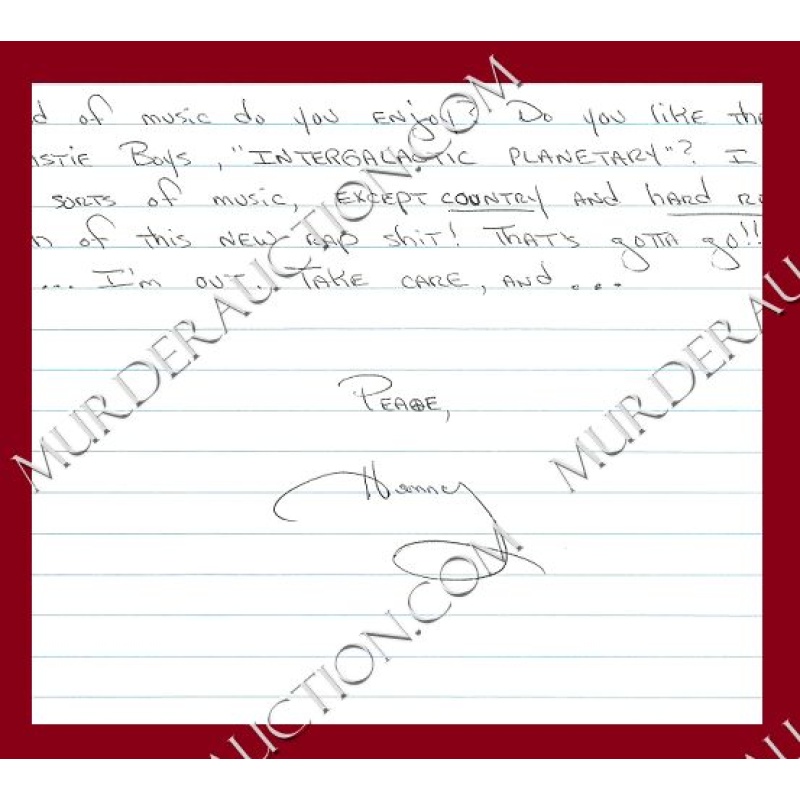 d of music do you ENjoy? Do you like the
ASTIE Boys, "INTERGALACTIC PLANETARY"? I
SORTS of music, EXCEPT COUNTRY AND hARD R
n of this NEW RAP shit! THAT'S gOTTA go!!
... I'm OUT. TAKE CARE, AND...
PEACE,
MURDERAUCTION.COM
MURDERAU
UCTION.COM